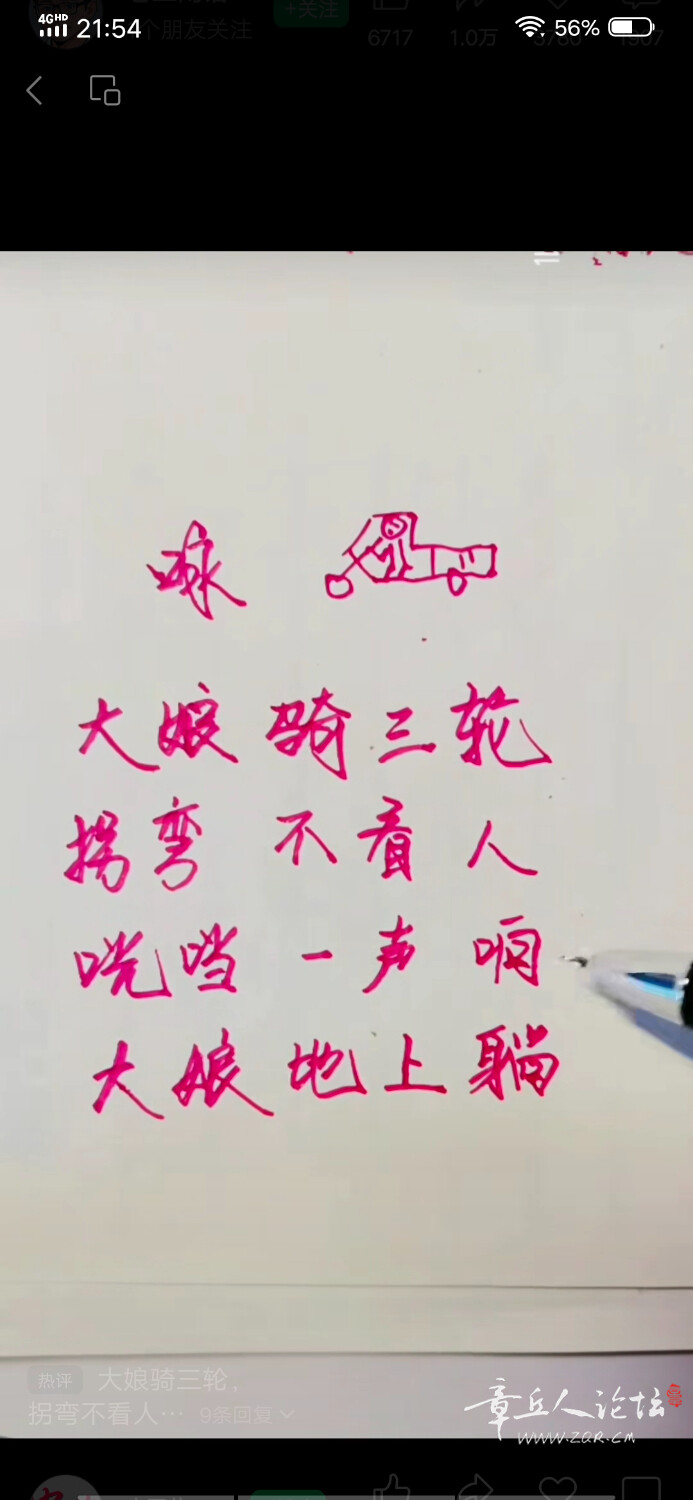 4GHD 21:54 56%
个朋友关注 +关注 6717 1.0万
咏
大娘骑三轮
拐弯不看人
咣当一声响
大娘地上躺
热评 大娘骑三轮，
拐弯不看人… 9条回复
章丘人论坛
www.zqr.cm